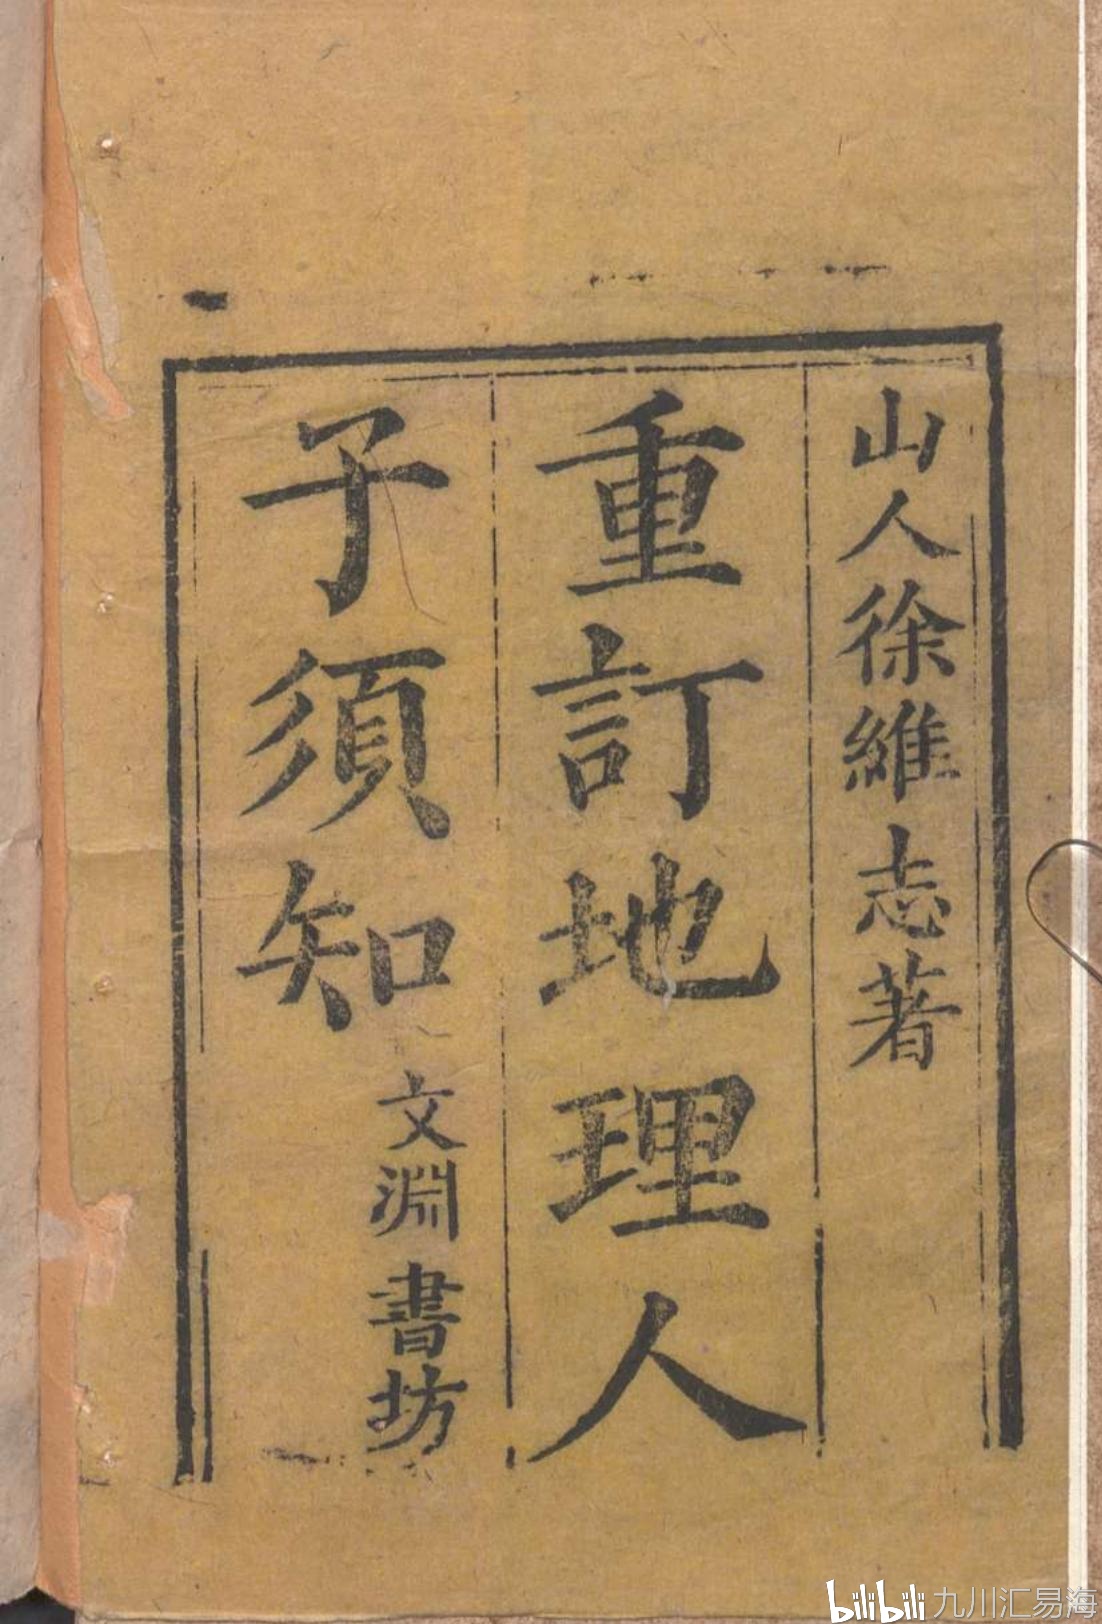 山人徐維志著
重訂地理人
子須知
文淵書坊
bilibili 九川汇易海